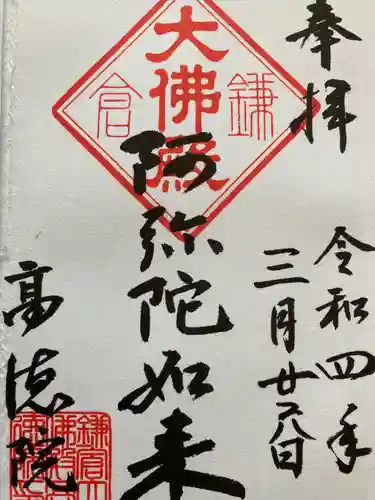 奉拝
令和四年
三月廿六日
大佛殿
鎌
倉
阿弥陀如来
高徳院